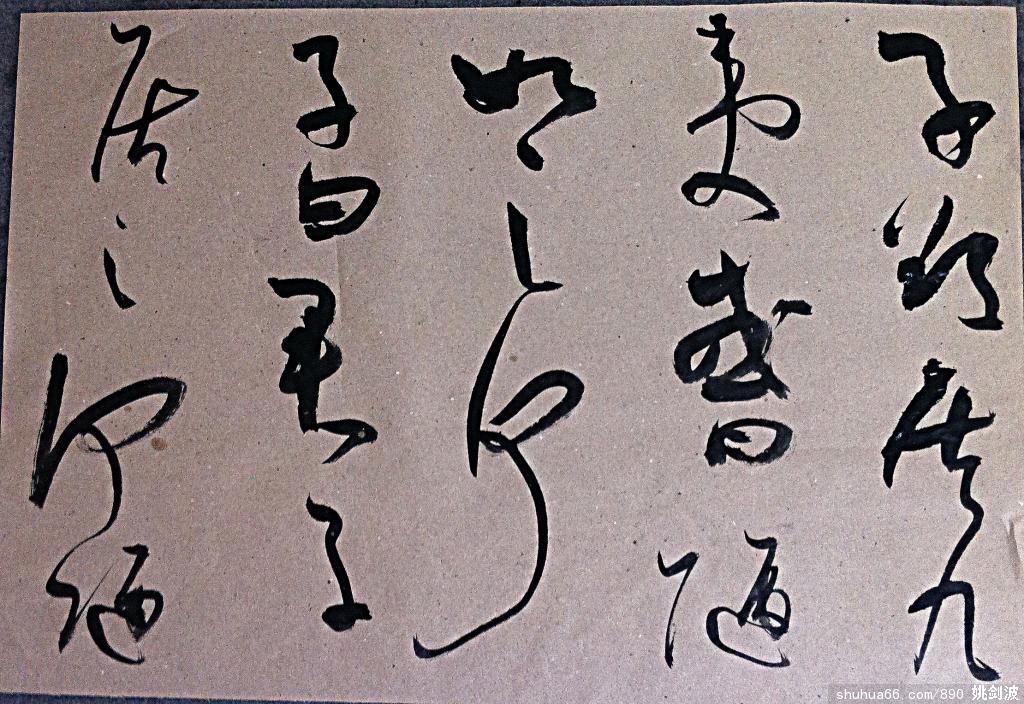 子欲居九
夷或曰陋
如之何
子曰君子
居之何陋
shuhua66.com/890 姚剑波